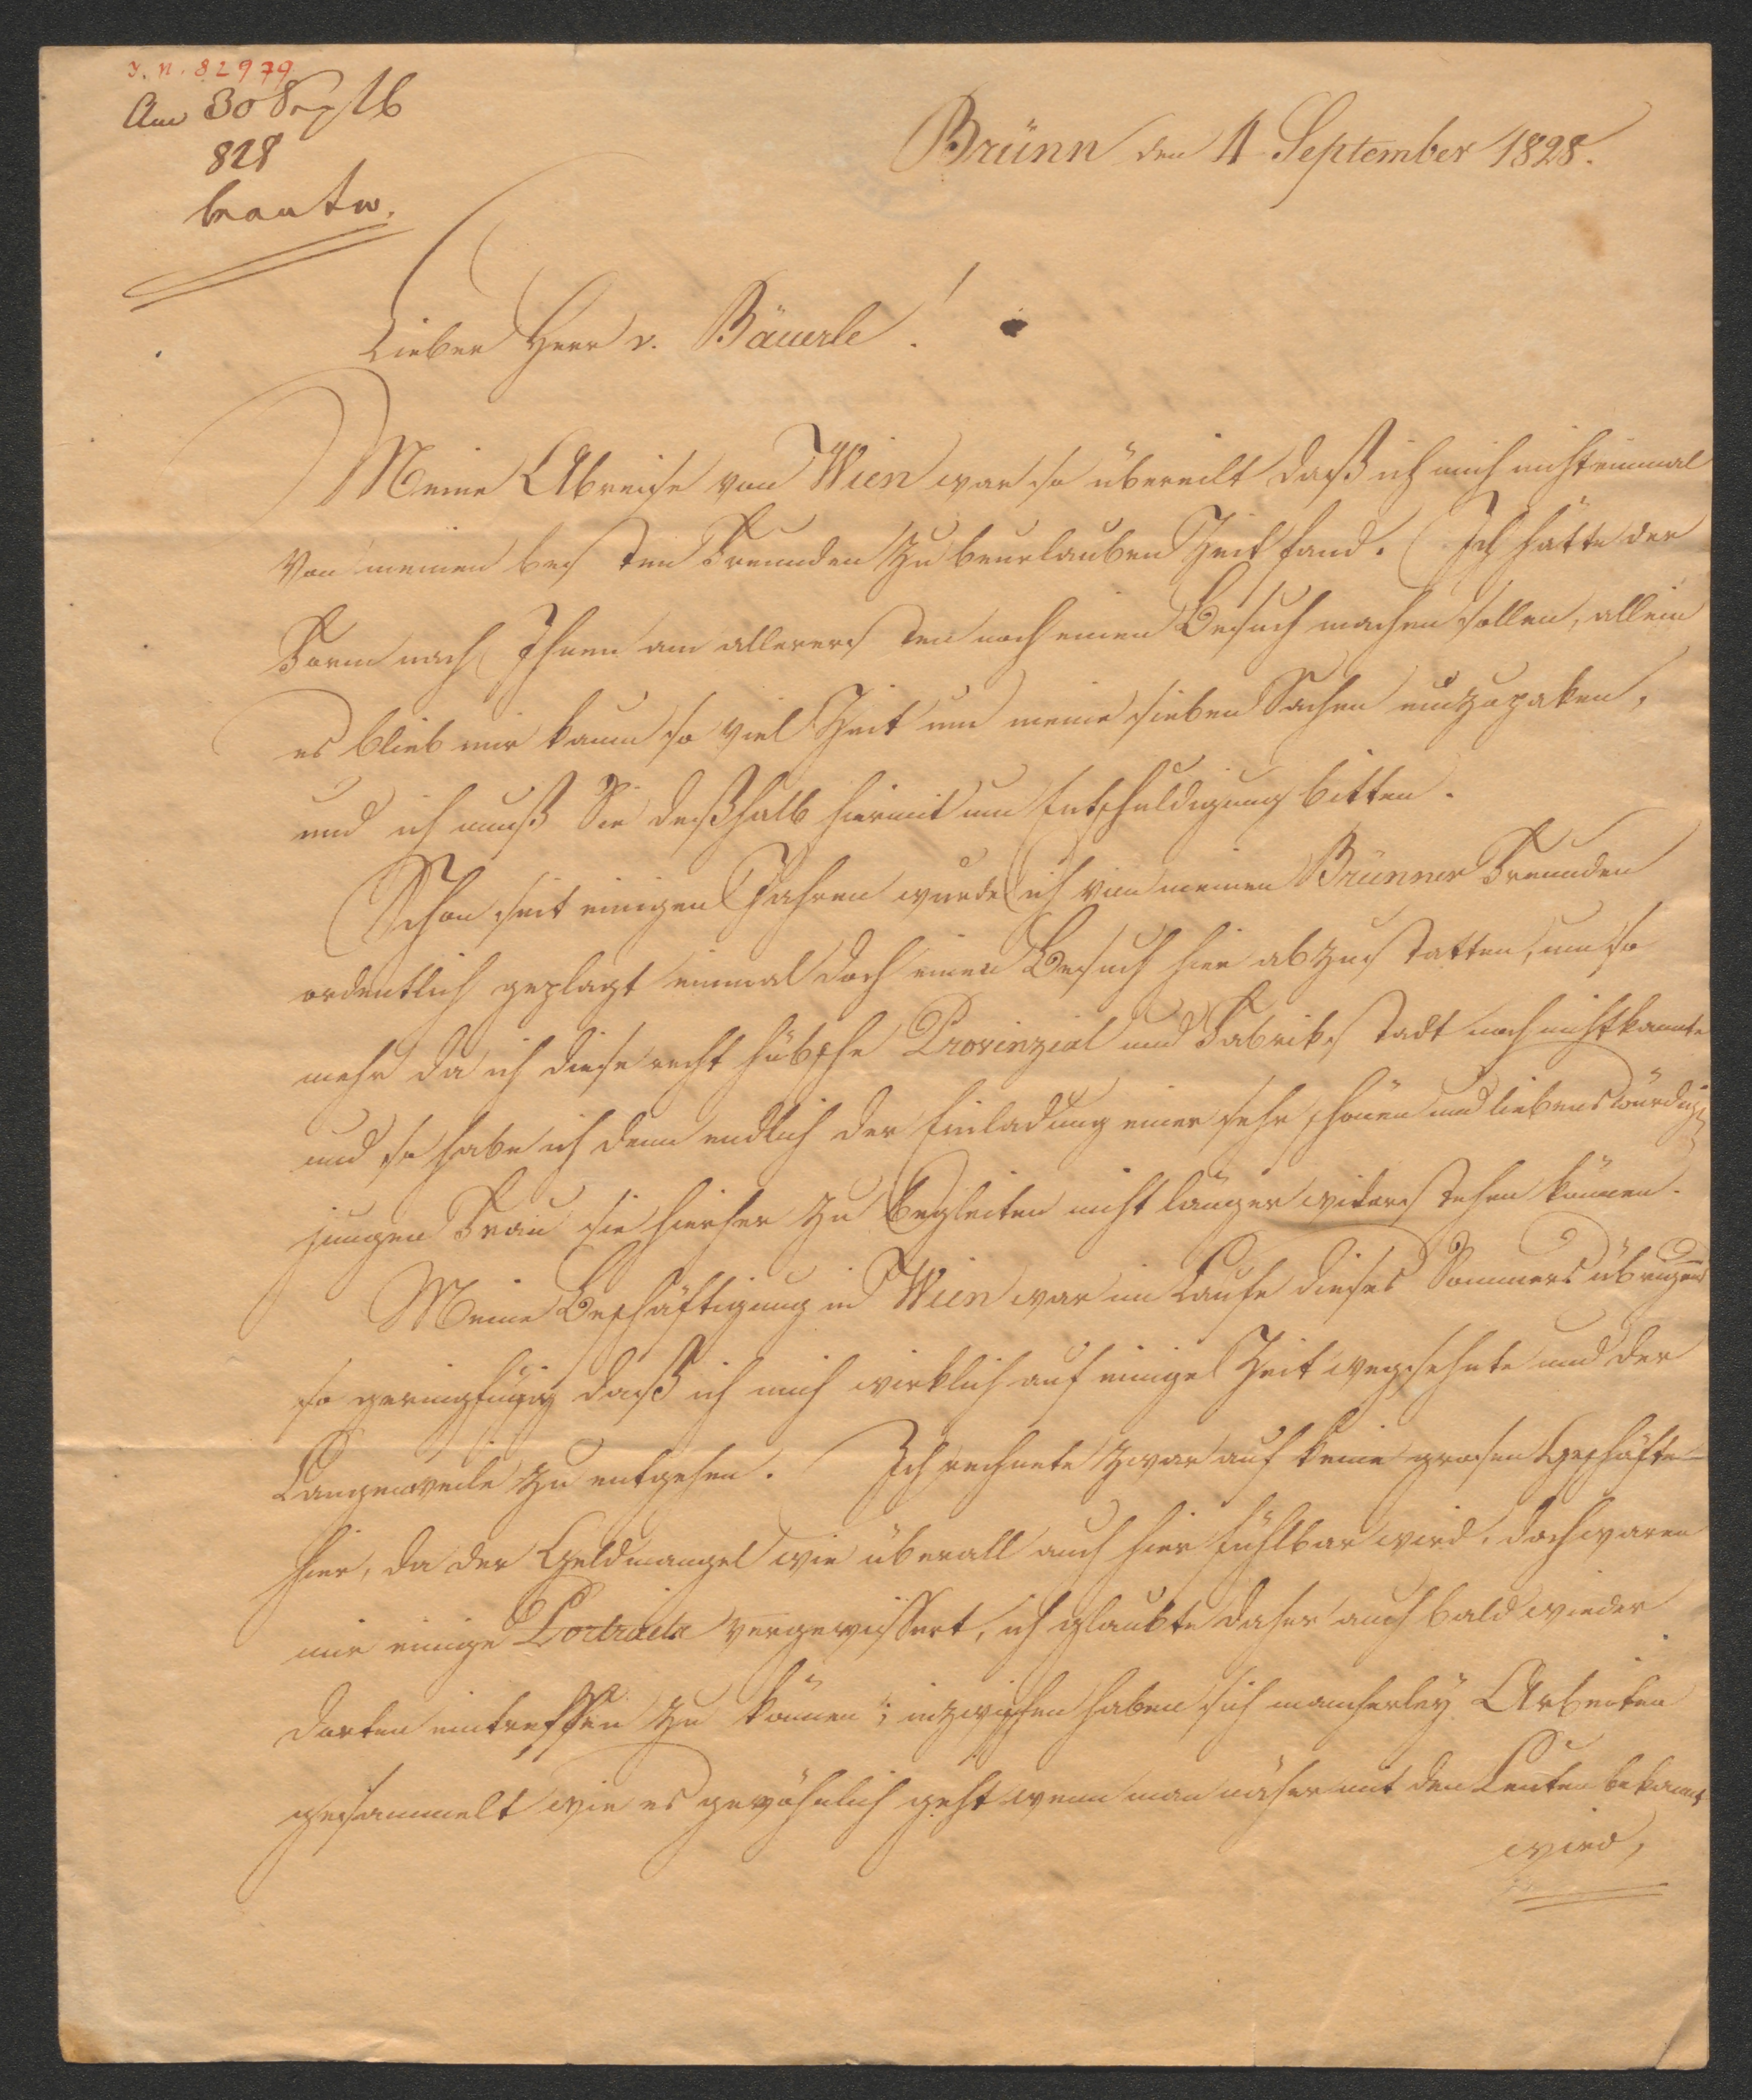 I. N. 82979
Am 30 Septb
828
beantw.
Brünn den 4 September 1828.
Lieber Herr v. Bäuerle!
Meine Abreise von Wien war so übereilt daß ich mich nicht einmal
von meinen besten Freunden zu beurlauben Zeit fand. Ich hätte der
Form nach Ihnen am allerersten noch einen Besuch machen sollen, allein
es blieb mir kaum so viel Zeit um meine sieben Sachen einzupaken,
und ich muß Sie deßhalb hiermit um Entschuldigung bitten.
Schon seit einigen Jahren wurde ich von meinen Brünner Freunden
ordentlich geplagt einmal doch einen Besuch hier abzustatten, um so
mehr da ich diese recht hübsche Provinzial und Fabriksstadt noch nicht kannte
und so habe ich denn endlich der Einladung einer sehr schönen und liebenswürdigen
jungen Frau sie hierher zu begleiten nicht länger widerstehen können.
Meine Beschäftigung in Wien war im Laufe dieses Sommers übrigens
so geringfügig daß ich mich wirklich auf einige Zeit wegsehnte um der
Langenweile zu entgehen. Ich rechnete zwar auf keine grosen Geschäfte
hier, da der Geldmangel wie überall auch hier fühlbar wird, doch waren
mir einige Portraite vergewissert, ich glaubte daher auch bald wieder
dorten eintreffen zu können; inzwischen haben sich mancherley Arbeiten
gesammelt wie es gewöhnlich geht wenn man näher mit den Leuten bekannt
wird,